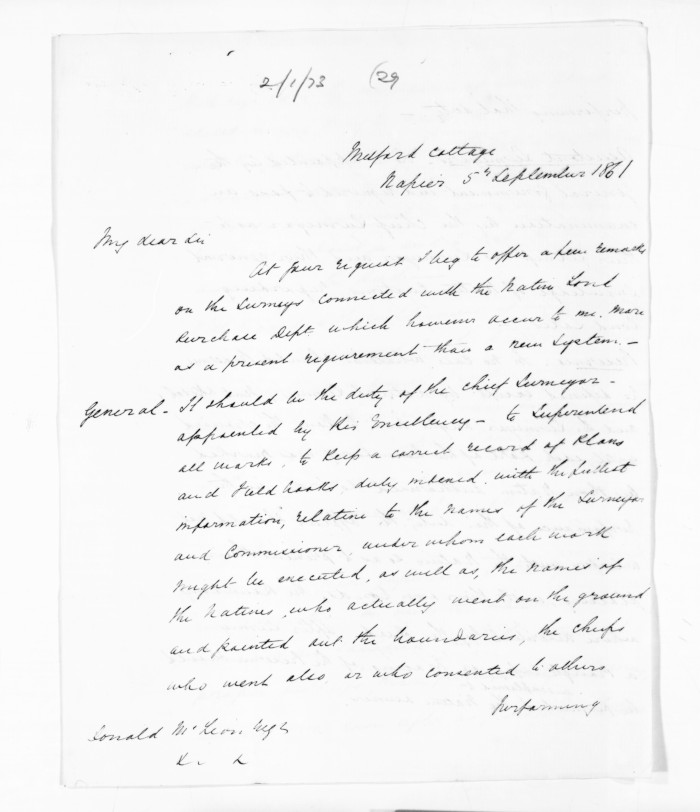 2/1/73 (29
Milford Cottage
Napier 5th September 1861
My dear Sir
At your request I beg to offer a few remarks
on the Surveys connected with the Native Land
Purchase Dept. which however occur to me more
as a present requirement than a new system. —
General - It should be the duty of the chief Surveyor -
appointed by His Excellency - to Superintend
all works, to keep a correct record of Plans
and Field books duly indexed with the fullest
information, relative to the names of the Surveyor
and Commissioner, under whom each work
might be executed, as well as, the names of
the Natives who actually went on the ground
and pointed out the boundaries, the chiefs
who went also or who consented to others
performing
Donald McLean Esqr
&c. &c